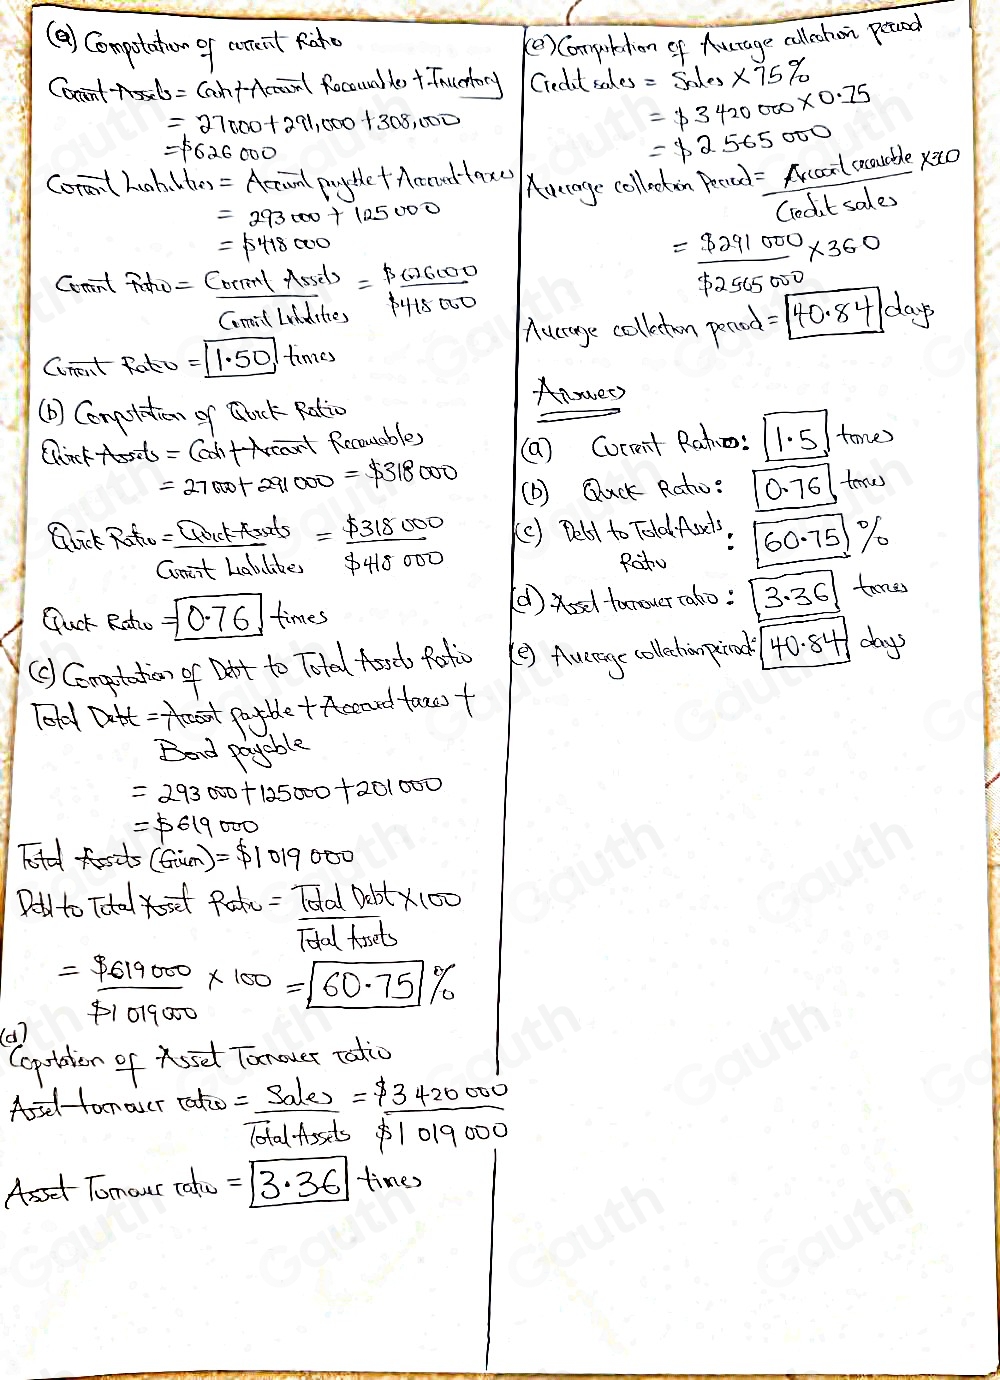 (a) Computation of current Ratio
Current Assets = Cash + Account Receivables + Inventory
= 27000 + 291,000 + 308,000
= $626 000
Current Liabilities = Account payable + Accrued taxes
= 293 000 + 125 000
= $418 000
Current Ratio = Current Assets / Current Liabilities = $626000 / $418 000
Current Ratio = 1.50 times
(b) Computation of Quick Ratio
Quick Assets = Cash + Account Receivables
= 27 000 + 291 000 = $318 000
Quick Ratio = Quick Assets / Current Liabilities = $318 000 / $418 000
Quick Ratio = 0.76 times
(c) Computation of Debt to Total Assets Ratio
Total Debt = Account payable + Accrued taxes +
Bond payable
= 293 000 + 125000 + 201 000
= $619 000
Total Assets (Given) = $1 019 000
Debt to Total Asset Ratio = Total Debt / Total Assets × 100
= $619 000 / $1 019 000 × 100 = 60.75 %
(d)
Coputation of Asset Turnover ratio
Asset turnover ratio = Sales / Total Assets = $3 420 000 / $1 019 000
Asset Turnover ratio = 3.36 times
(e) Computation of Average collection period
Credit sales = Sales × 75%
= $3 420 000 × 0.75
= $2 565 000
Average collection Period = Account receivable / Credit sales × 360
= $291 000 / $2565 000 × 360
Average collection period = 40.84 days
Answers
(a) Current Ratio: 1.5 times
(b) Quick Ratio: 0.76 times
(c) Debt to Total Assets Ratio: 60.75 %
(d) Asset turnover ratio: 3.36 times
(e) Average collection period: 40.84 days